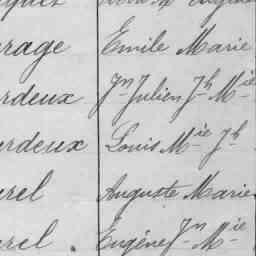 rage Emile Marie
rdeux Jn Julien Jh Mie
rdeux Louis Mie Jh
rel Auguste Marie
rel. Eugène Jn Mie